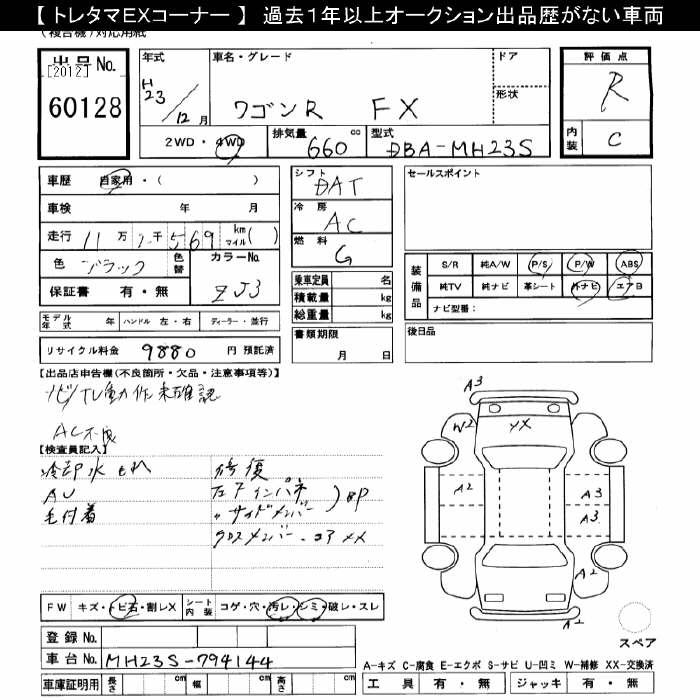 【 トレタマEXコーナー 】 過去1年以上オークション出品歴がない車両
(複合機)対応用紙
出品No.
[2012]
60128
年式
H23/12月
車名・グレード
ワゴンR FX
ドア
形状
評価点
R
内装
C
2WD・4WD
排気量
660 cc
型式
DBA-MH23S
車歴 自家用・( )
車検 年 月
走行 11万 2千569 km マイル( )
色 ブラック 色替
カラーNo. ZJ3
保証書 有・無
シフト
DAT
冷房
AC
燃料
G
乗車定員 名
積載量 kg
総重量 kg
書類期限
月 日
セールスポイント
装備品
S/R 純A/W P/S P/W ABS
純TV 純ナビ 革シート 外ナビ エアB
ナビ型番:
後日品
モデル年式 年 ハンドル 左・右 ディーラー・並行
リサイクル料金 9880 円 預託済
【出品店申告欄(不良箇所・欠品・注意事項等)】
ナビTV動作未確認
AC不良
【検査員記入】
冷却水もれ
AU
毛付着
修復
左フインパネ
〃サイドメンバー
)BP
クロスメンバー・コアXX
A3
W2
YX
A2
A3
A3
A2
A2
スペア
FW キズ・トビ石・割レX シート内装 コゲ・穴・汚レ・シミ・破レ・スレ
登録No.
車台No. MH23S-794144
車庫証明用 長さ cm 幅 cm 高さ cm
A-キズ C-腐食 E-エクボ S-サビ U-凹ミ W-補修 XX-交換済
工具 有・無 ジャッキ 有・無